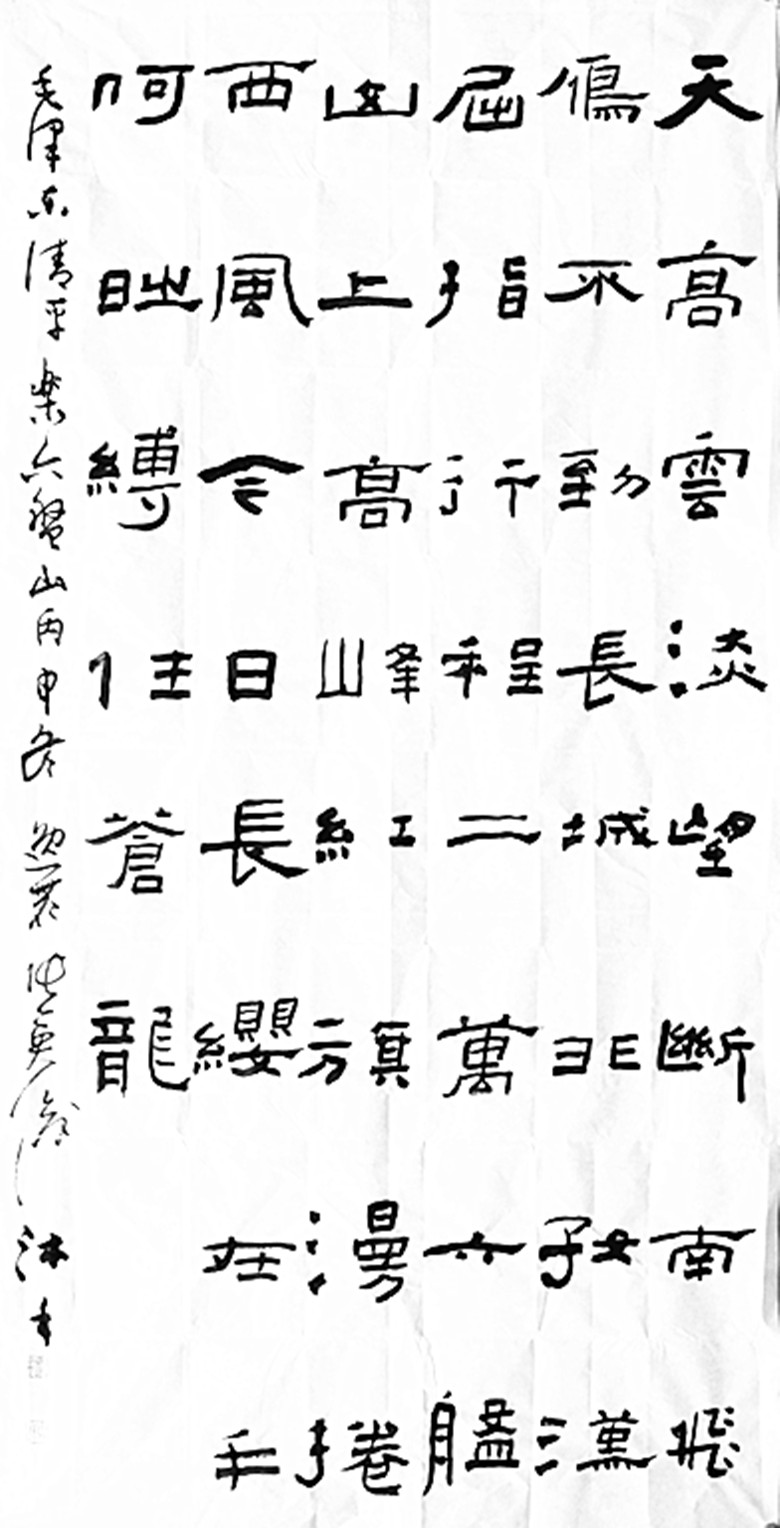 天高雲淡望斷南飛
鴈不到長城非好漢
屈指行程二萬六盤
山上高峰紅旗漫捲
西風今日長纓在手
何時縛住蒼龍
毛澤东清平樂六盤山丙申冬